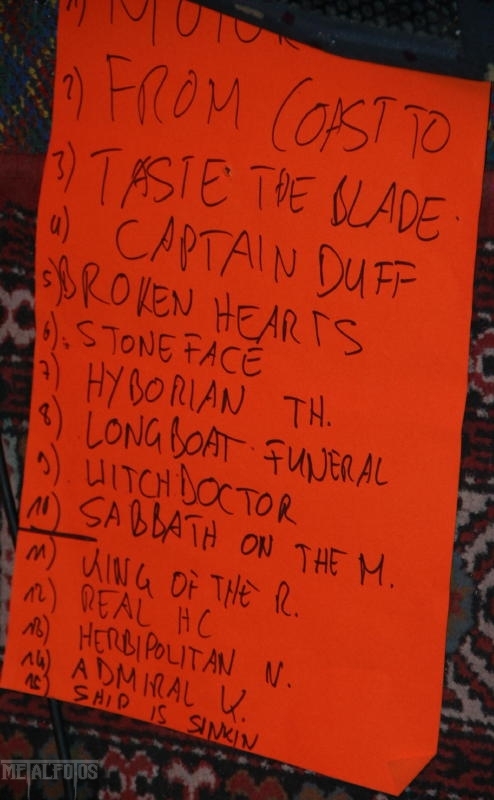 1) MOTOR
2) FROM COAST TO
3) TASTE THE BLADE.
4) CAPTAIN DUFF
5) BROKEN HEARTS
6) STONEFACE
7) HYBORIAN TH.
8) LONGBOAT FUNERAL
9) WITCHDOCTOR
10) SABBATH ON THE M.
11) KING OF THE R.
12) REAL HC
13) HERBIPOLITAN N.
14) ADMIRAL K.
15) SHIP IS SINKIN
METALFOTOS